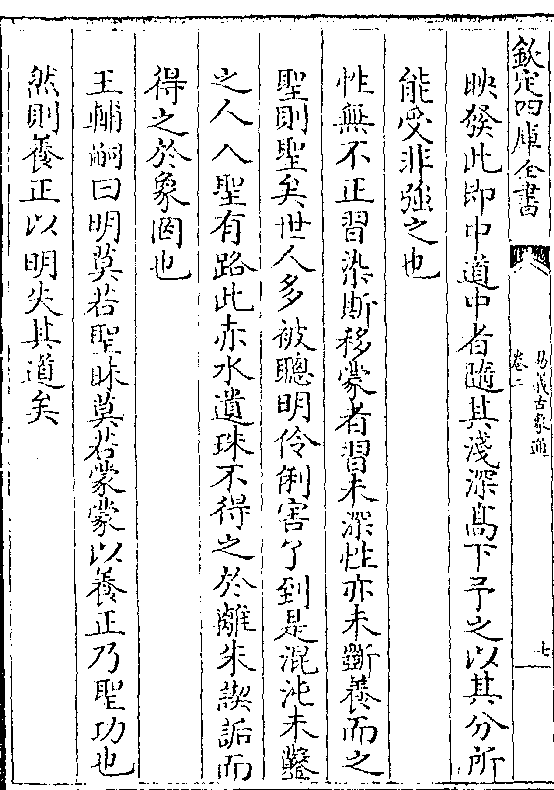 欽定四庫全書
易義古象通
卷二
七
映發此即中道中者隨其淺深高下予之以其分所
能受非強之也
性無不正習染斯移蒙者習未深性亦未斷養而之
聖則聖矣世人多被聰明伶俐害了到是混沌未鑿
之人入聖有路此赤水遺珠不得之於離朱諁詬而
得之於象罔也
王輔嗣曰明莫若聖昧莫若蒙蒙以養正乃聖功也
然則養正以明失其道矣